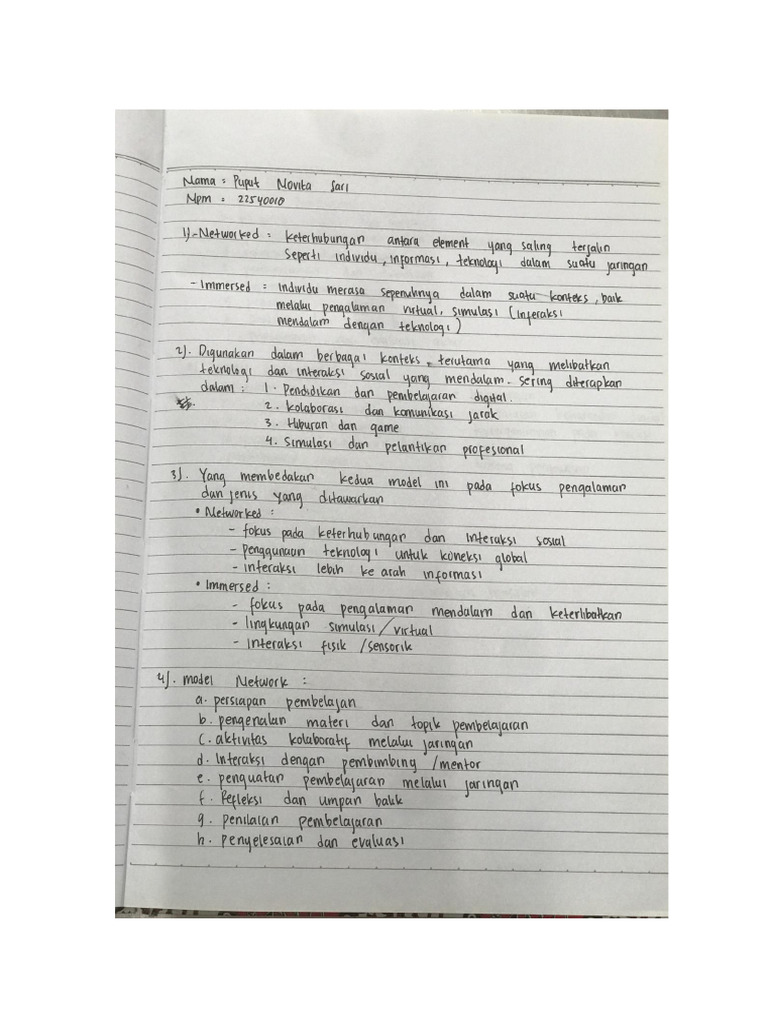 Nama : Puput Novita Sari
Npm : 22540010
1). - Networked : keterhubungan antara element yang saling terjalin
seperti individu, informasi, teknologi dalam suatu jaringan
- Immersed : individu merasa sepenuhnya dalam suatu konteks, baik
melalui pengalaman virtual, simulasi (interaksi
mendalam dengan teknologi)
2). Digunakan dalam berbagai konteks, terutama yang melibatkan
teknologi dan interaksi sosial yang mendalam. Sering diterapkan
dalam : 1. Pendidikan dan pembelajaran digital.
2. kolaborasi dan komunikasi jarak
3. Hiburan dan game
4. Simulasi dan pelantikan profesional
3). Yang membedakan kedua model ini pada fokus pengalaman
dan jenis yang ditawarkan
• Networked :
- fokus pada keterhubungan dan interaksi sosial
- penggunaan teknologi untuk koneksi global
- interaksi lebih ke arah informasi
• Immersed :
- fokus pada pengalaman mendalam dan keterlibatkan
- lingkungan simulasi/virtual
- interaksi fisik /sensorik
4). model Network :
a. persiapan pembelajan
b. pengenalan materi dan topik pembelajaran
c. aktivitas kolaboratif melalui jaringan
d. Interaksi dengan pembimbing /mentor
e. penguatan pembelajaran melalui jaringan
f. Refleksi dan umpan balik
g. penilaian pembelajaran
h. penyelesaian dan evaluasi